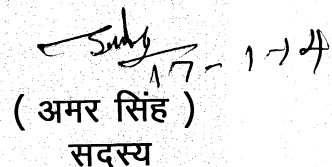 17-1-14
( अमर सिंह )
सदस्य